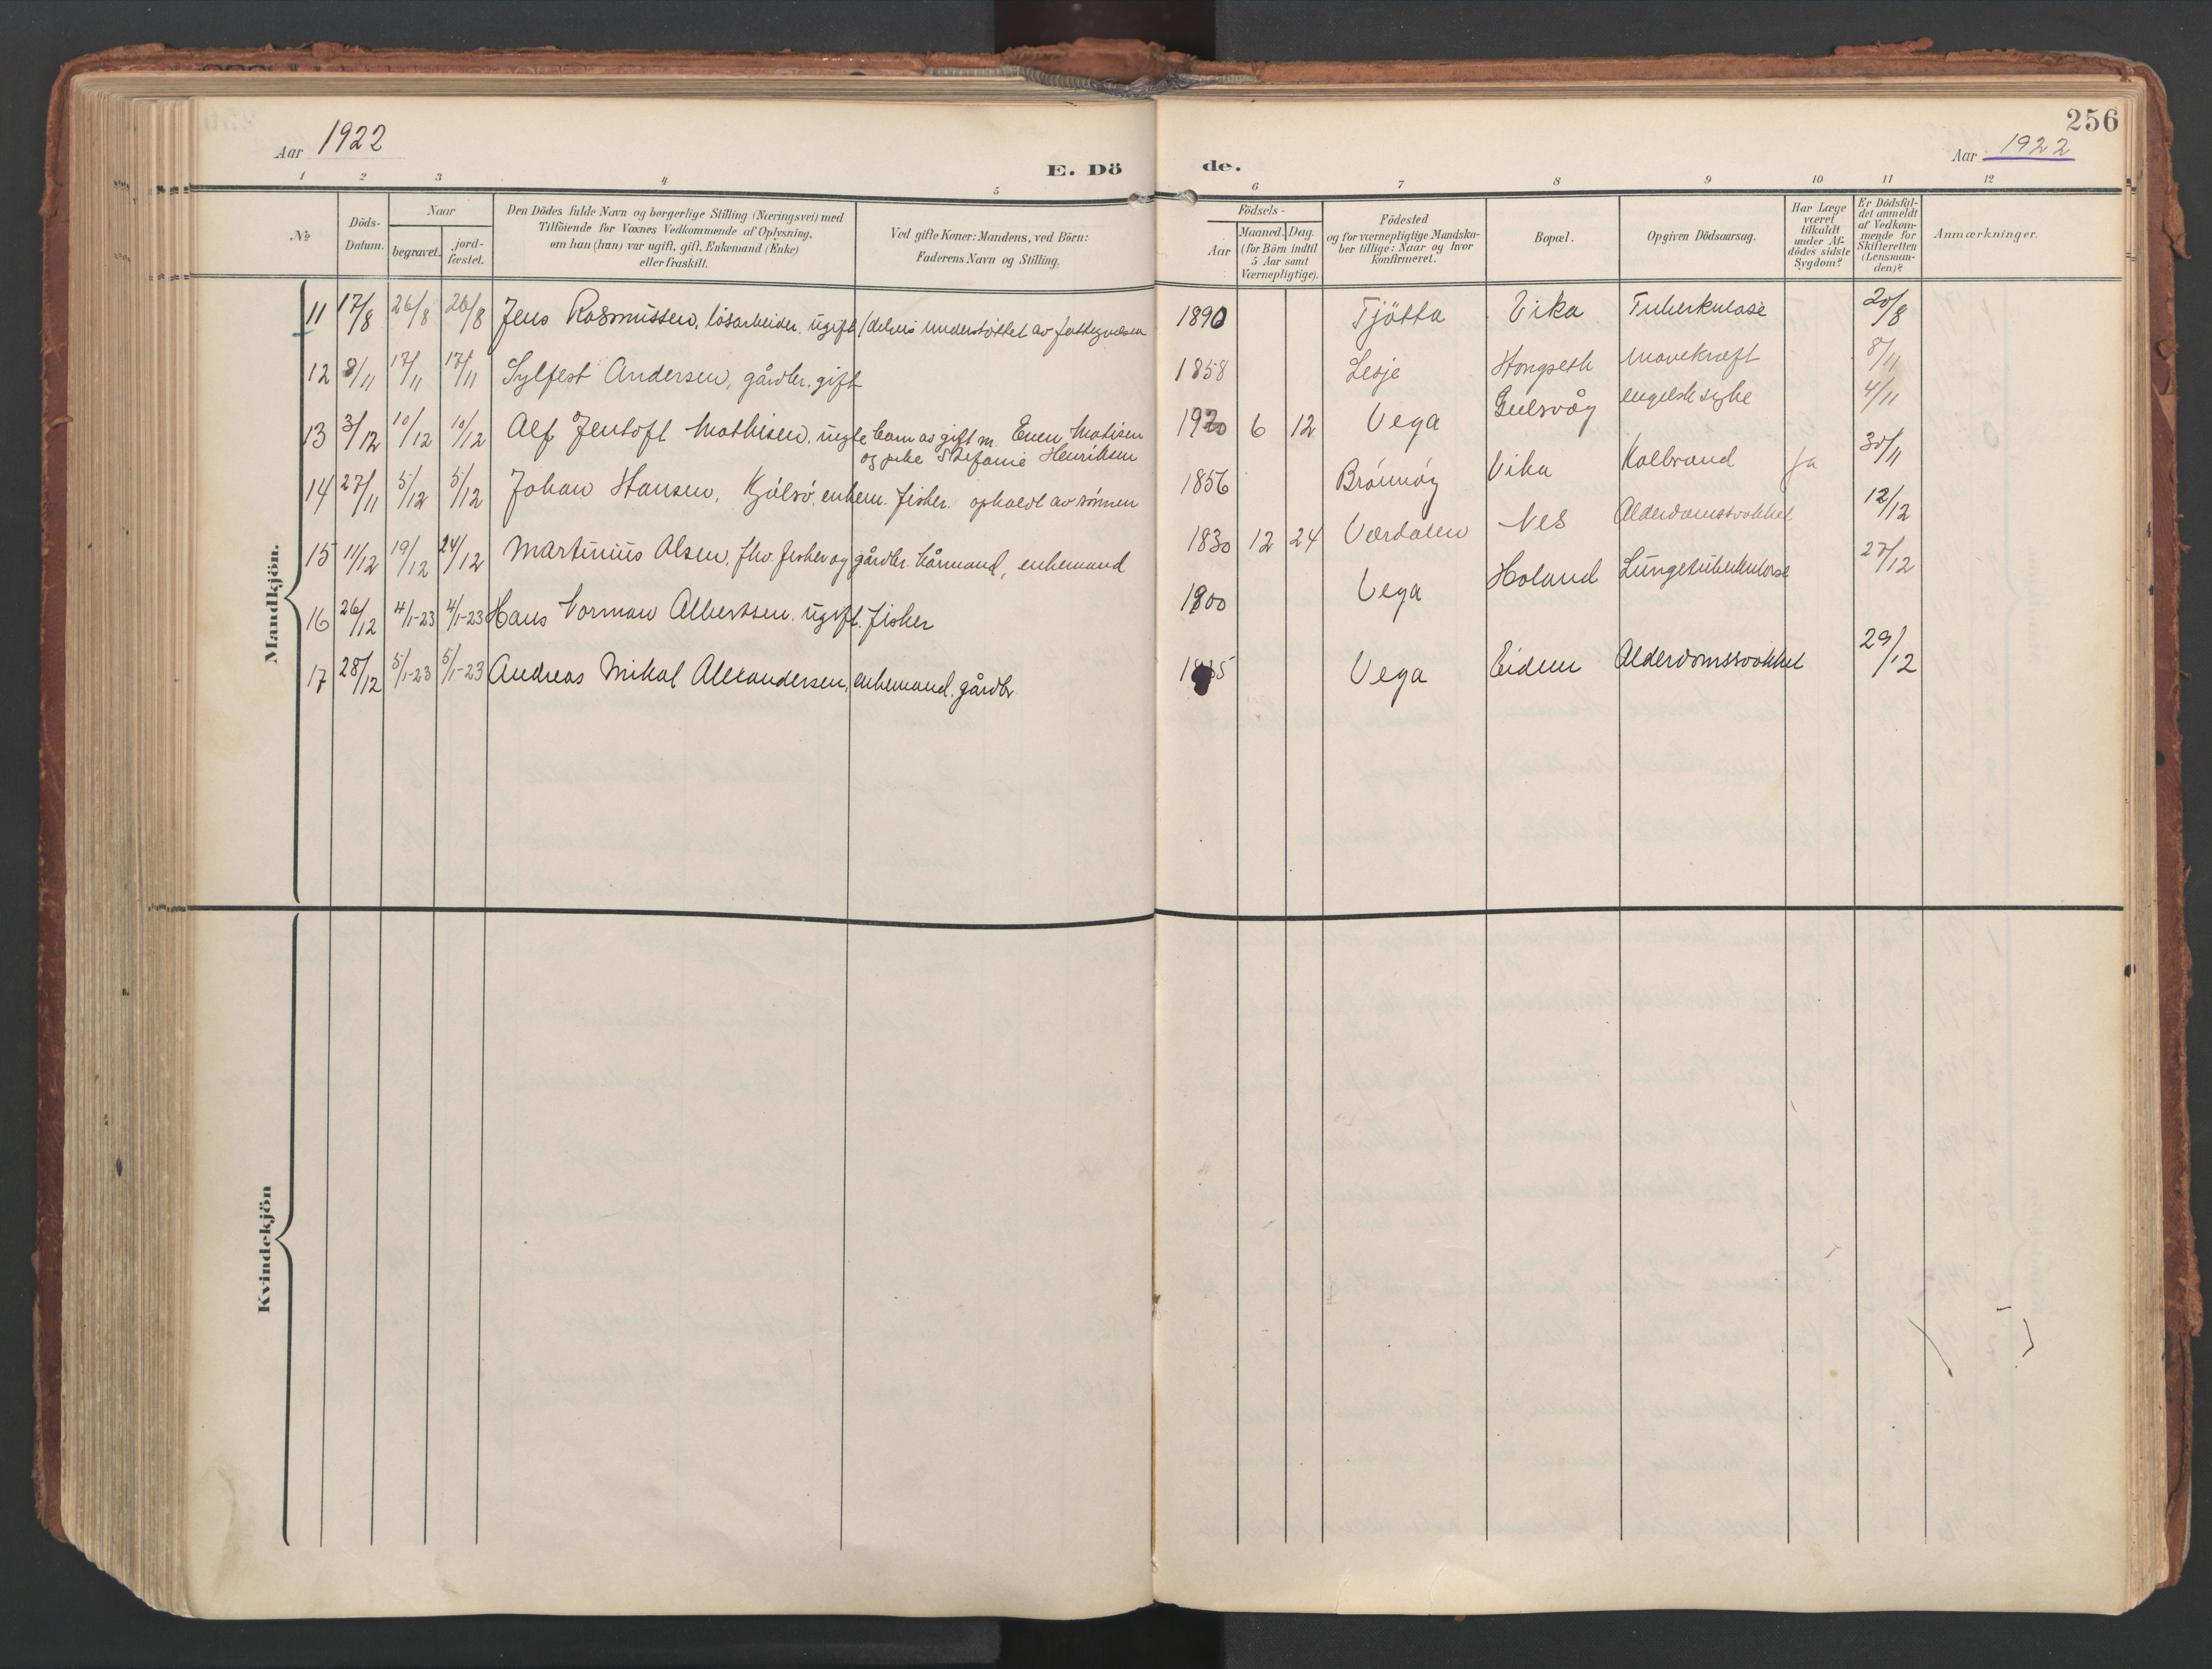 256
Aar 1922
Aar 1922
E. Dö de.
1 2 3 4 5 6 7 8 9 10 11 12
№
Döds-
Datum.
Naar
begravet.
jord-
fæstet.
Den Dödes fulde Navn og borgerlige Stilling (Næringsvei) med
Tilföiende for Voxnes Vedkommende af Oplysning,
om han (hun) var ugift, gift, Enkemand (Enke)
eller fraskilt.
Ved gifte Koner: Mandens, ved Börn:
Faderens Navn og Stilling.
Födsels-
Aar
Maaned. Dag.
(for Börn indtil
5 Aar samt
Værnepligtige).
Födested
og for værnepligtige Mandska-
ber tillige: Naar og hvor
konfirmeret.
Bopæl.
Opgiven Dödsaarsag.
Har Læge
været
tilkaldt
under Af-
dödes sidste
Sygdom?
Er Dödsfal-
det anmeldt
af Vedkom-
mende for
Skifteretten
(Lensman-
den)?
Anmærkninger.
Mandkjön.
11 17/8 26/8 26/8 Jens Rasmussen, lösarbeider, ugift (delvis understöttet av fattigvæsen 1890 Tjötta Vika Tuberkulose 20/8
12 8/11 17/11 17/11 Sylfest Andersen, gårdbr. gift 1858 Lesje Hongseth Mavekræft 8/11
13 3/12 10/12 10/12 Alf Jentoft Mathisen, ungte barn av gift m. Even Matisen 1920 6 12 Vega Gulsvåg engelsk syke 4/11
og pike Stefanie Henriksen
14 27/11 5/12 5/12 Johan Hansen, Kjölsö, enkem. fisker. opholdt av sönnen 1856 Brönnöy Vika Kolbrand Ja 30/11
15 11/12 19/12 24/12 Martinius Olsen, fhv. fisker og gårdbr. kårmand, enkemand 1830 12 24 Værdalen Nes Alderdomssvakhet 12/12
16 26/12 4/1-23 4/1-23 Hans Norman Albertsen, ugift. fisker 1900 Vega Holand Lungetuberkulose 27/12
17 28/12 5/1-23 5/1-23 Andreas Mikal Alexandersen, enkemand. gårdbr Vega Eidem Alderdomssvakhet 29/12
Kvindekjön